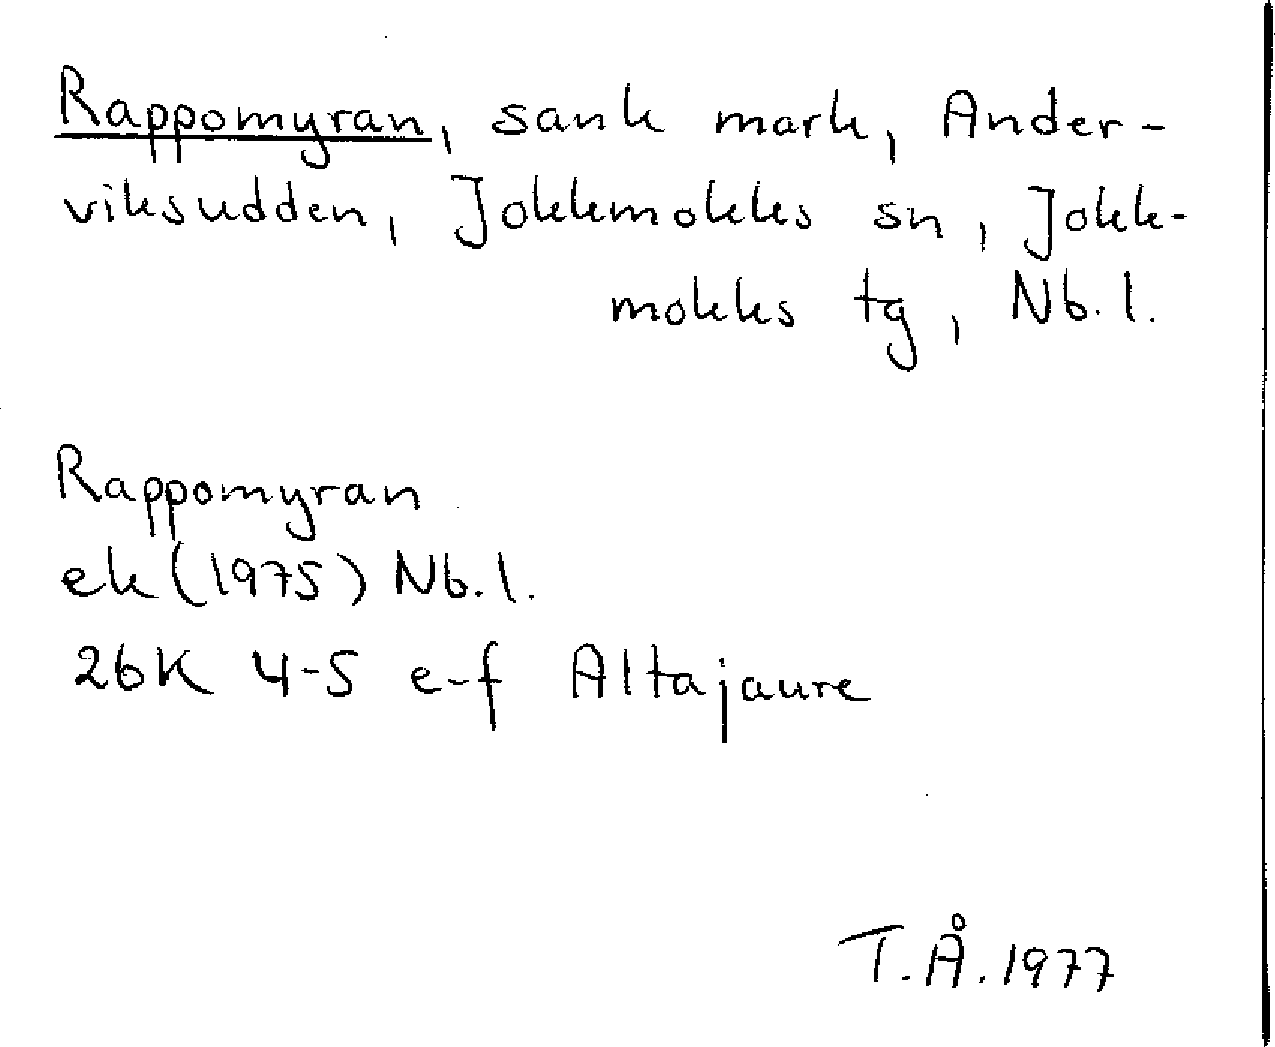 Rappomyran, sank mark, Ander-
viksudden, Jokkmokks sn, Jokk-
mokks tg, Nb. l.
Rappomyran
ek (1975) Nb. l.
26K 4-5 e-f Altajaure
T. Å. 1977